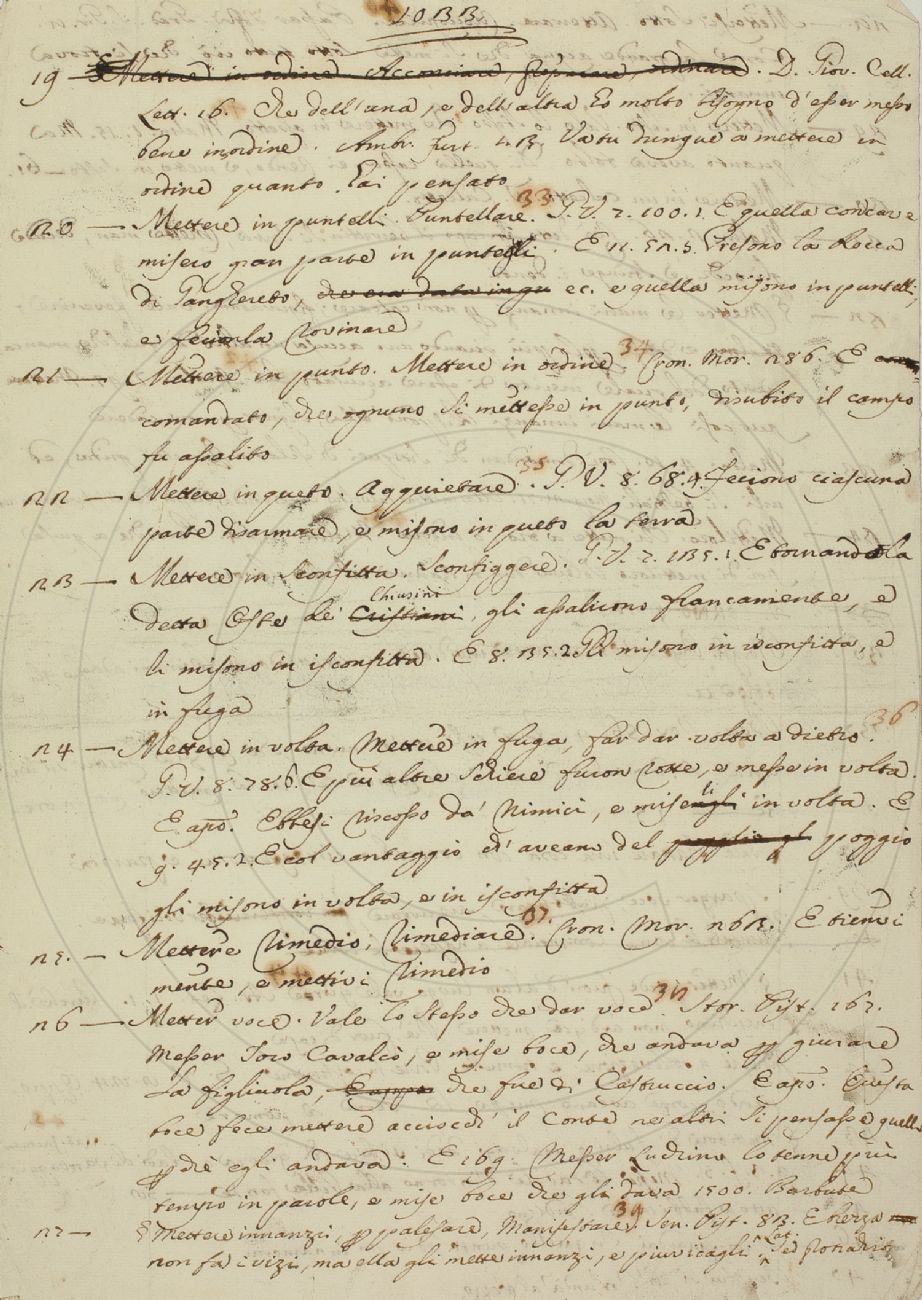 1033
19 — Mettere in ordine Acconciare, Preparare, ordinare. D. Giov. Cell.
Lett. 16. Che dell'una, e dell'altra ho molto bisogno d'esser messo
bene in ordine. Ambr. Furt. Va tu dunque a mettere in
ordine quanto hai pensato
20 — Mettere in puntelli. Puntellare. 33 G. V. 7. 100. 1. E quella
misero gran parte in puntelli. E 11. 52. 3. Presono la Rocca
di Panghereto, ec. e quella misono in puntelli,
e feciorla rovinare
21 — Mettere in punto. Mettere in ordine. 34 Cron. Mor. 286. E
comandato, che ognuno si mettesse in punto, disubito il campo
fu assalito
22 — Mettere in queto. Acquietare. 35 G. V. 8. 68. 4. Feciono ciascuna
parte disarmare, e misono in queto la terra
23 — Mettere in sconfitta. Sconfiggere. G. V. 7. 135. 1. E tornando la
detta Oste de' Cristiani Chiusini, gli assalirono francamente, e
li misono in isconfitta. E 8. 35. 2 misono in isconfitta, e
in fuga
24 — Mettere in volta. Mettere in fuga, far dar volta a dietro. 36
G. V. 8. 78. 6. E più altre schiere furon rotte, e messe in volta.
E app. Ebbesi riscosso da' Nimici, e miseli in volta. E
9. 45. 2. E col vantaggio ch'aveano del poggio
gli misono in volta, e in isconfitta
25. — Mettere rimedio, Rimediare. 37. Cron. Mor. 263. E tienvi
mente, e mettivi rimedio
26 — Metter voce. Vale lo stesso che dar voce. 38 Stor. Pist. 167.
Messer Joro Cavalcò, e mise boce, che andava per giurare
La figliuola, che fue di Castruccio. E app. Questa
boce fece mettere acciocch' il Conte ne altri si pensasse quello
perchè egli andava. E 169. Messer Ludrino lo tenne più
tempo in parole, e mise boce che gli dava 1500. Barbute
27 — § Mettere innanzi, per palesare, Manifestare. 39 Sen. Pist. 83.
non fa i vizi, ma ella gli mette innanzi, e